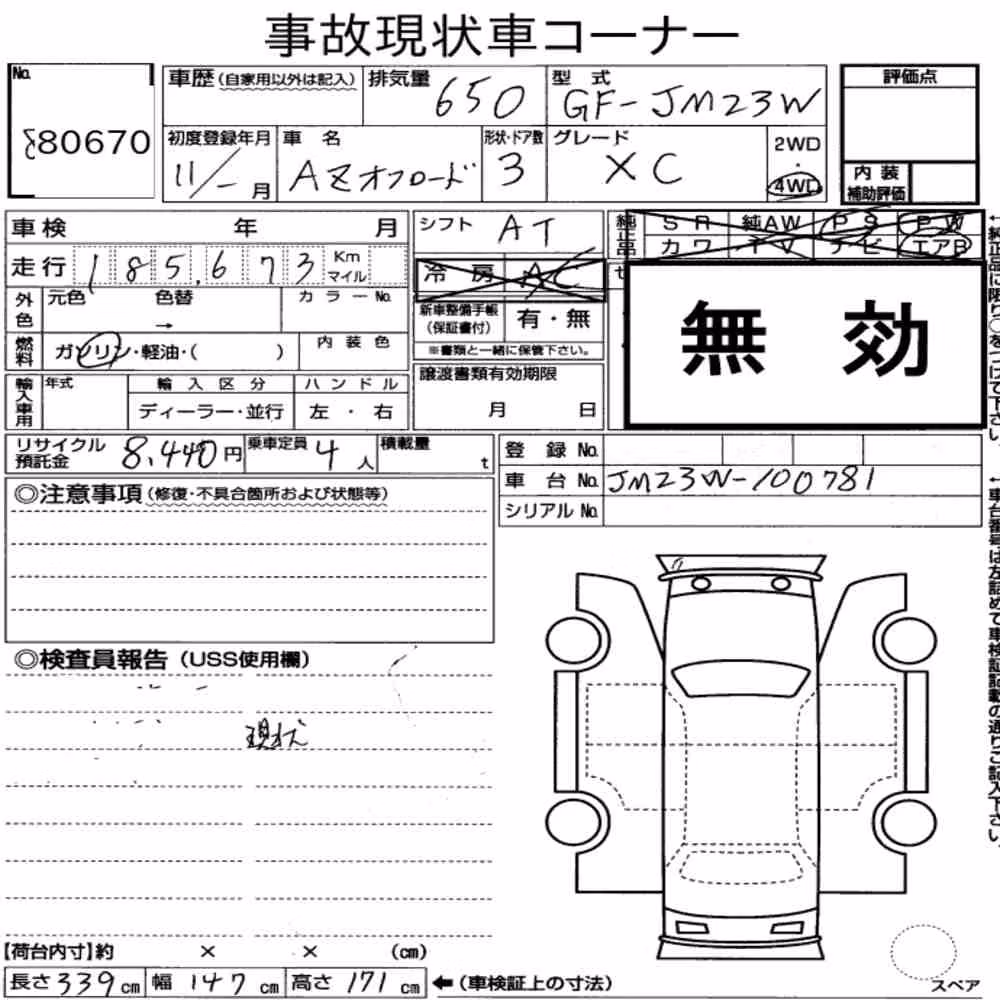 事故現状車コーナー
No.
80670
車歴(自家用以外は記入)
排気量 650
型式 GF-JM23W
評価点
初度登録年月 11/- 月
車名 AZオフロード
形状・ドア数 3
グレード XC
2WD・4WD
内装補助評価
車検 年 月
シフト AT
純正品
SR 純AW PS PW
カワ TV ナビ エアB
走行 185,673 Km マイル
冷房 AC
外色
元色 色替 →
カラーNo.
新車整備手帳(保証書付) 有・無
※書類と一緒に保管下さい。
無効
燃料 ガソリン・軽油・( )
内装色
輸入車用
年式
輸入区分 ディーラー・並行
ハンドル 左・右
譲渡書類有効期限
月 日
リサイクル預託金 8,440円
乗車定員 4人
積載量 t
登録No.
車台No. JM23W-100781
シリアルNo.
◎注意事項(修復・不具合箇所および状態等)
◎検査員報告(USS使用欄)
現状
←純正品に限り○をつけて下さい。
←車台番号は左詰めで車検証記載の通りご記入下さい。
【荷台内寸】約 × × (cm)
長さ339cm 幅147cm 高さ171cm ←(車検証上の寸法)
スペア